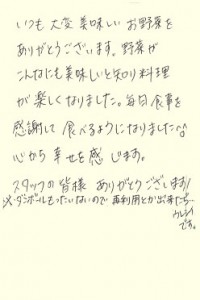 いつも大変美味しいお野菜を
ありがとうございます。野菜が
こんなにも美味しいと知り料理
が楽しくなりました。毎日食事を
感謝して食べるようになりました^^
心から幸せを感じます。
スタッフの皆様 ありがとうございます!
※ダンボールもったいないので 再利用とか出来たら
ウレシイ
です。